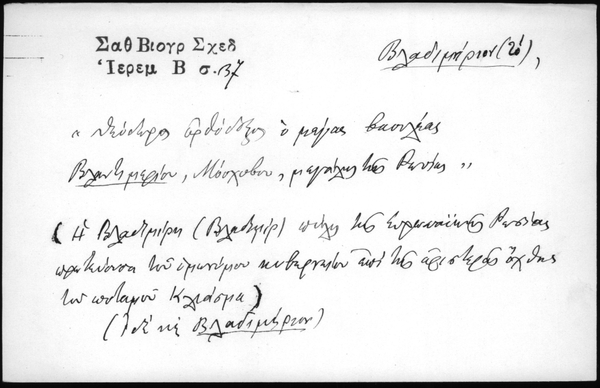 Σαθ Βιογρ Σχεδ
Ἱερεμ Β σ. 137
Βλαδιμήριον (τό),
« Θεόστεπτος ὀρθόδοξος ὁ μέγας βασιλέας
Βλαντιμερίου, Μόσχοβου, μεγάλης της Ρουσίας »
(Ἡ Βλαδιμίρη (Βλαδιμίρ) πόλις τῆς Εὐρωπαϊκῆς Ρωσσίας
πρωτεύουσα τοῦ ὁμωνύμου κυβερνείου ἐπί τῆς ἀριστερᾶς ὄχθης
τοῦ ποταμοῦ Κλιάσμα)
(Ἰδέ καί Βλαδιμήριον)